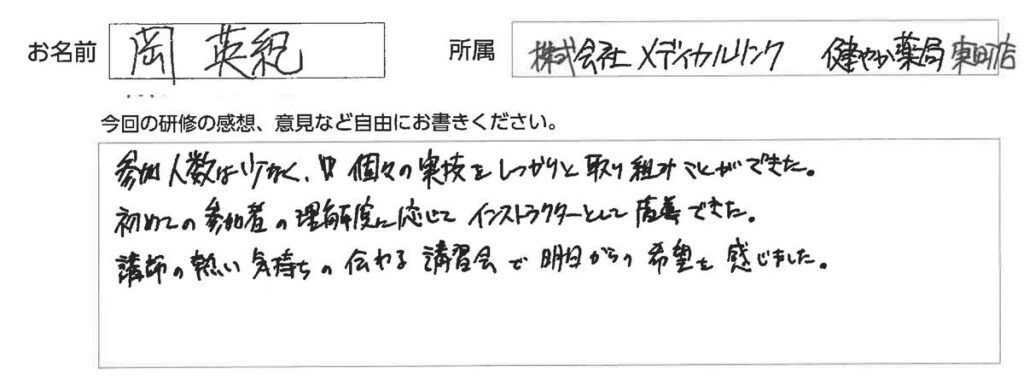 お名前 岡 英紀 所属 株式会社 メディカルリンク 健やか薬局 東町店
今回の研修の感想、意見など自由にお書きください。
参加人数は少なく、個々の実技をしっかりと取り組みことができた。
初めての参加者の理解度に応じて インストラクターとして 改善できた。
講師の熱い気持ちの伝わる 講習会で 明日からの希望を感じました。